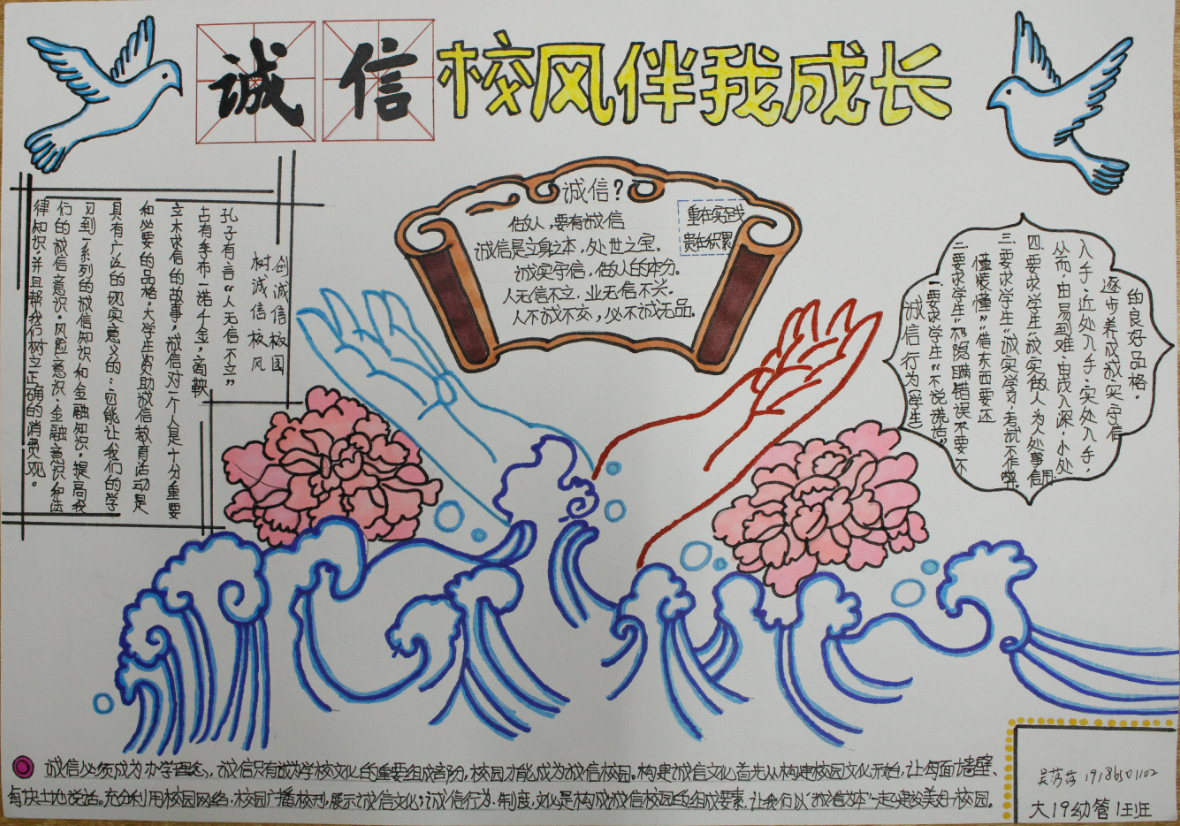 诚信校风伴我成长
诚信?
做人,要有诚信
诚信是立身之本,处世之宝。
诚实守信,做人的本分。
人无信不立,业无信不兴。
人不诚不交,心不诚无品。
重在实践
贵在积累
创诚信校园
树诚信校风
孔子有言“人无信不立”
占有季布一诺千金,商鞅
立木求信的故事,诚信对一个人是十分重要
和必要的品格。大学生资助诚信教育活动是
具有广泛的现实意义的:它能让我们的学
习到一系列的诚信知识和金融知识,提高我
们的诚信意识、风险意识、金融意识和法
律知识,并且帮我们树立正确的消费观。
诚信行为(学生)
一要求学生“不说谎话”
二要求学生“不隐瞒错误不要不
懂装懂”“借东西要还
三要求学生“诚实学习,考试不作弊
四要求学生“诚实做人为人处事信用
从而由易到难,由浅入深,小处
入手、近处入手、实处入手,
逐步养成诚实守信
的良好品格。
诚信必须成为办学理念,诚信只有成为学校文化的重要组成部分,校园才能成为诚信校园。构建诚信文化首先从构建校园文化开始,让每面墙壁、
每块土地说话。充分利用校园网络、校园广播校刊,展示诚信文化;诚信行为、制度、文化是构成诚信校园的组成要素,让我们以“诚信为本”一起建设美好校园。
19186501102
大19幼管1班